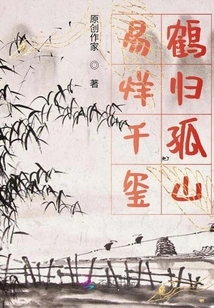 鹤归孤山
易烊千玺
原创作家
◎
著